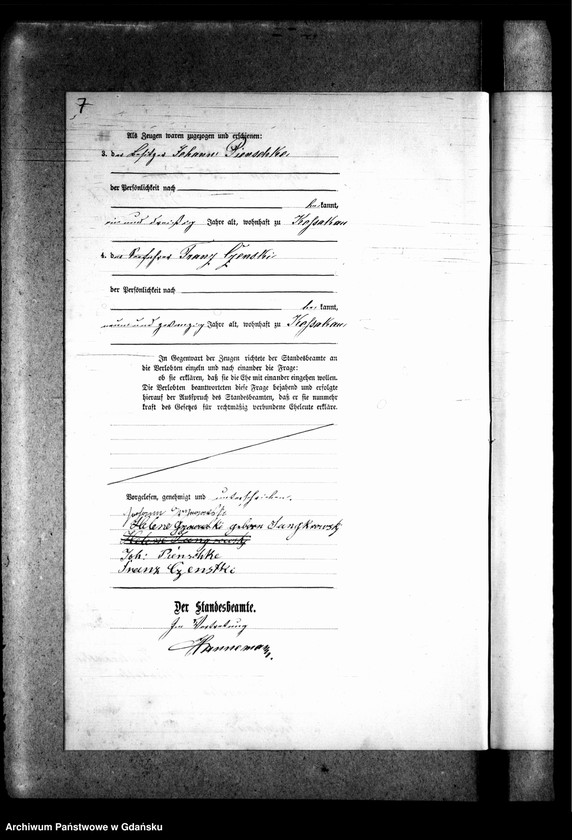 7
Als Zeugen waren zugezogen und erschienen:
3. der Besitzer Johann Pienschke
der Persönlichkeit nach
bekannt,
ein und dreißig Jahre alt, wohnhaft zu Kossakau
4. der Franz Czenski
der Persönlichkeit nach
bekannt,
neunundzwanzig Jahre alt, wohnhaft zu Kossakau
In Gegenwart der Zeugen richtete der Standesbeamte an
die Verlobten einzeln und nach einander die Frage:
ob sie erklären, daß sie die Ehe mit einander eingehen wollen.
Die Verlobten beantworteten diese Frage bejahend und erfolgte
hierauf der Ausspruch des Standesbeamten, daß er sie nunmehr
kraft des Gesetzes für rechtmäßig verbundene Eheleute erkläre.
Vorgelesen, genehmigt und unterschrieben.
Helene geborn
Joh: Pienschke
Franz Czenstki
Der Standesbeamte.
In Vertretung
Hannemann.
Archiwum Państwowe w Gdańsku